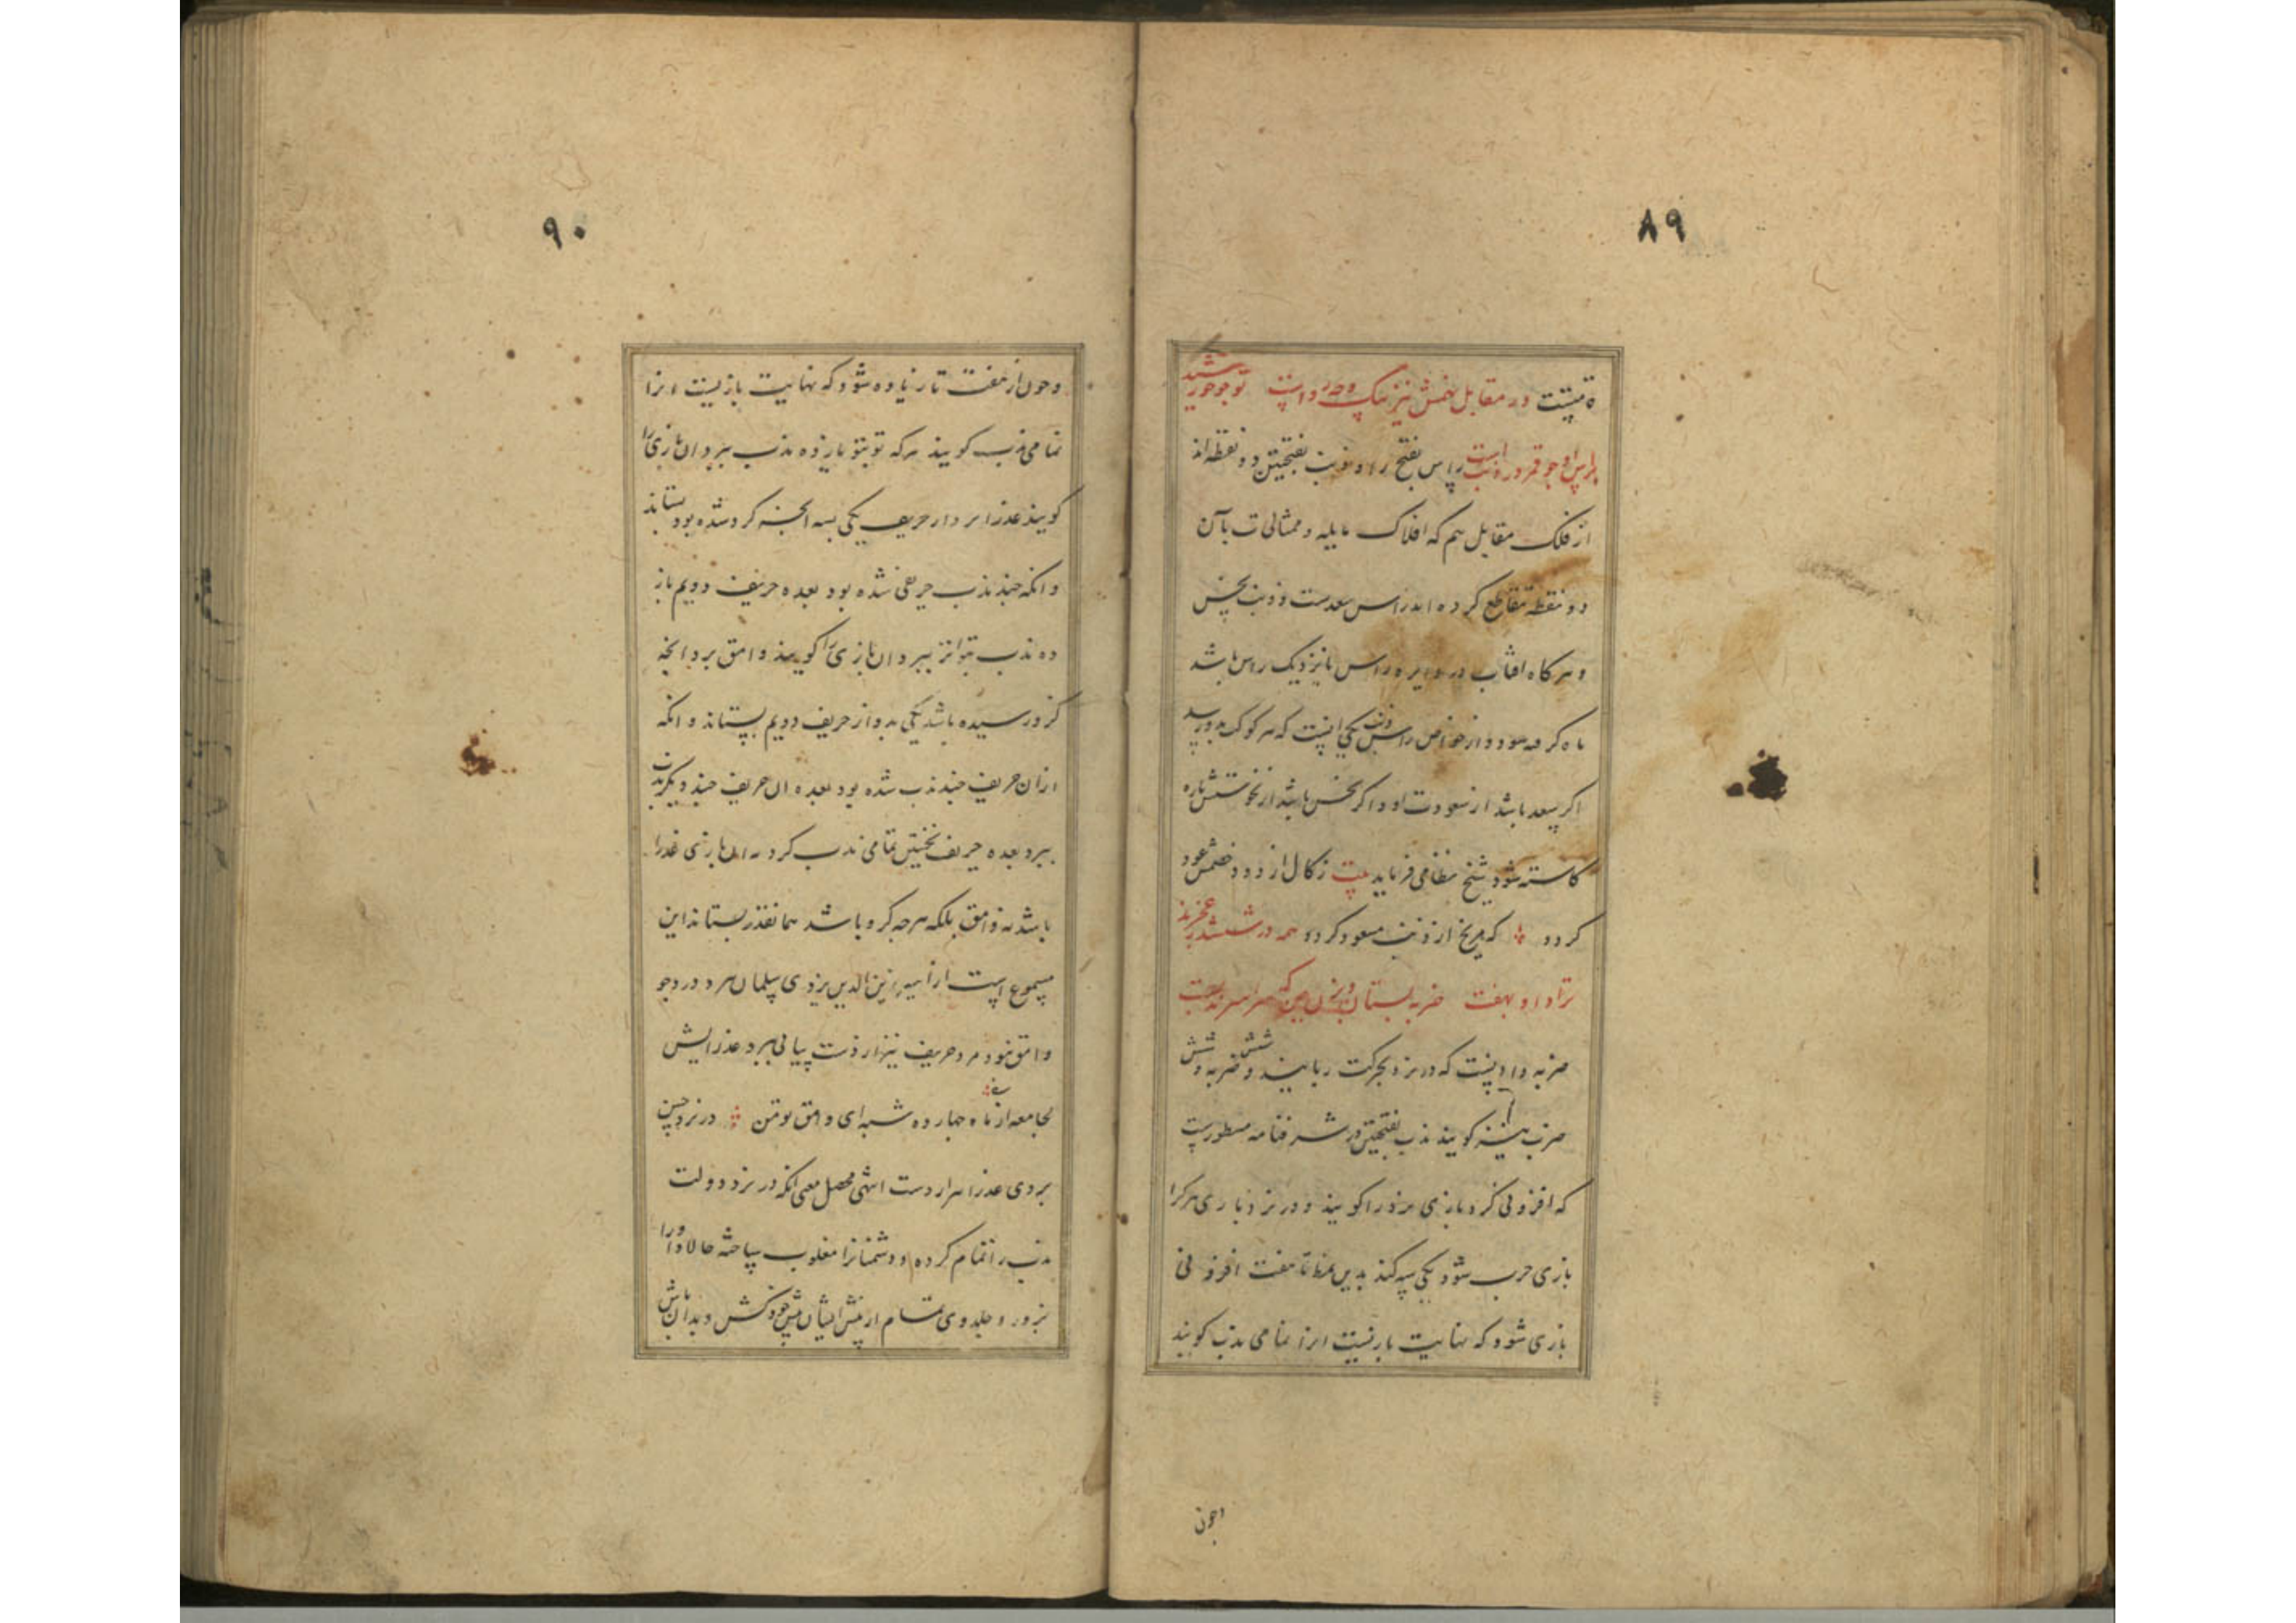 ۸۹
در مقابل نیز
راس بفتح را و ذنب بفتحتین دو نقطه اند
از فلک مقابل هم که افلاک مایله و ممثالی ت بآن
دو نقطه تقاطع کرده اند راس سعدست و ذنب نحس
و هر کاه افتاب در دایره راس یا نزدیک راس باشد
ماه کرفته شود و از خواص راس و ذنب یکی اینست که هر کوکب بدو رسد
اکر سعد باشد از سعودت او و اکر نحس باشد از نحوستش پاره
کاسته شود شیخ نظامی فرماید بیت ز کال از دود خصمش عود
کردد که مریخ از ذنب مسعود کردد همه در ششدر عجزند
ترا داو بهفت ضربه بستان و بزن
ضربه داویست که در نرد بحرکت ربایند و ضربه شش
ضرب نیز کویند ندب بفتحتین در شرفنامه مسطورست
که افزونی کرو بازی نرد را کویند و در نرد بازی هر کرا
بازی خرب شود یکی سه کند بدین نمط تا هفت افزونی
بازی شود که نهایت بازیست انرا تمامی ندب کویند
وچون
۹۰
و چون از هفت تا زیاده شود که نهایت بازیست انرا
تمامی ندب کویند هر که نوبتو یازده ندب ببرد ان بازی را
کویند عذرا برد از حریف یکی بسه انچه کرو شده بود بستاند
و انکه چند ندب حریفی شده بود بعده حریف دویم باز
ده ندب متواتر ببرد ان بازی را کویند وامق برد انچه
کرو رسیده باشد یکی بدو از حریف دویم بستاند و انکه
ازان حریف چند ندب شده بود بعده ان حریف چند دیکر ندب
ببرد بعده حریف نخستین تمامی ندب کرد نه ان بازی عذرا
باشد نه وامق بلکه هر چه کرو باشد همانقدر بستاند این
مسموع است از امیر زین الدین یزدی سلمان
وامق نبود مرد حریف نیز از دست پیاپی ببرد عذرایش
لجامعه از ماه چهارده شبه ای وامق تو من در نرد حسن
بردی عذرا هزار دست انتهی محصل معنی انکه در نرد دولت
ندب را تمام کرده و دشمنانرا مغلوب ساخته حالا داو را
بزور و جلدوی تمام از پیش ایشان پیش خود کش و بدان باش